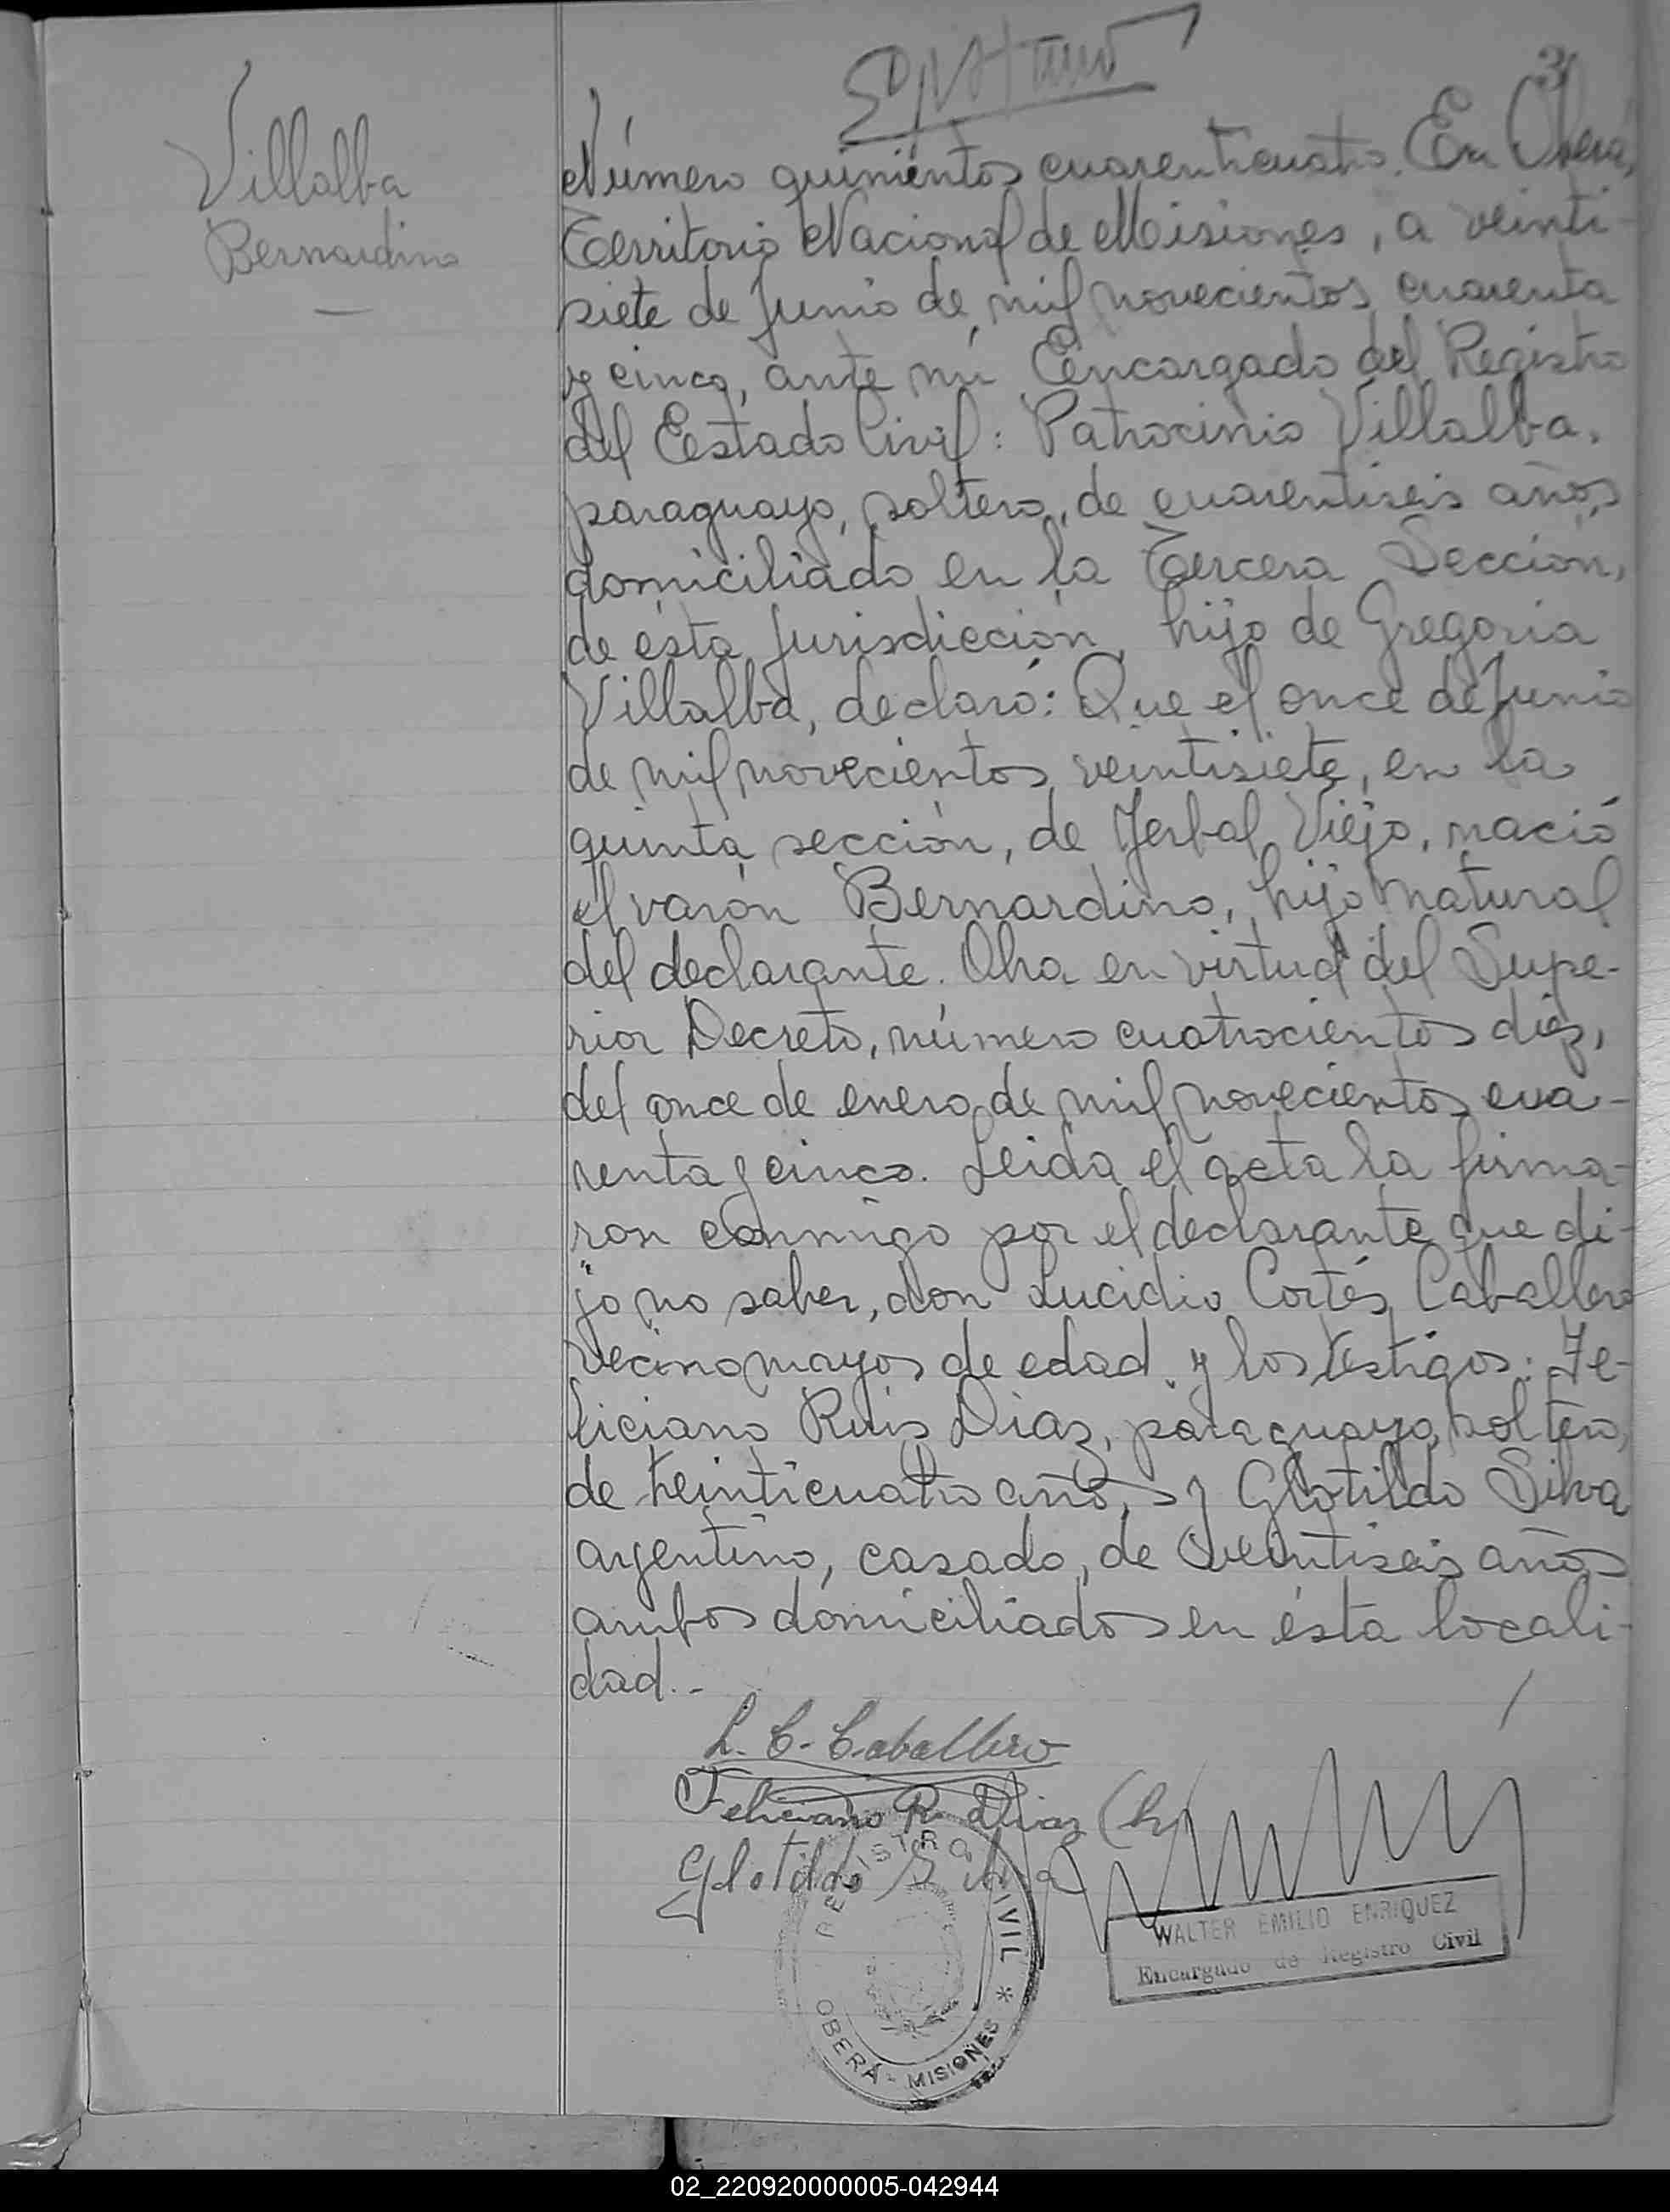 3
Villalba
Bernardino
Número quinientos cuarenticuatro. En Oberá,
Territorio Nacional de Misiones, a veinti-
siete de Junio de mil novecientos cuarenta
y cinco, ante mí Encargado del Registro
del Estado Civil: Patrocinio Villalba,
paraguayo, soltero, de cuarentiseis años,
domiciliado en la Tercera Sección,
de ésta Jurisdicción, hijo de Gregoria
Villalba, declaró: Que el once de Junio
de mil novecientos veintisiete, en la
quinta sección, de Yerbal Viejo, nació
el varón Bernardino, hijo natural
del declarante. Obra en virtud del Supe-
rior Decreto, número cuatrocientos diez,
del once de enero de mil novecientos cua-
renta y cinco. Leida el acta la firma-
ron conmigo por el declarante que di-
jo no saber, don Lucidio Cortés Caballero
vecino mayor de edad y los testigos: Fe-
liciano Ruis Diaz, paraguayo, soltero,
de treinticuatro años, y Glotildo Silva
argentino, casado, de veintiseis años
ambos domiciliados en ésta locali-
dad.-
L. C. Caballero
Feliciano R. Diaz (h)
Glotildo Silva
REGISTRO CIVIL * OBERÁ - MISIONES
WALTER EMILIO ENRIQUEZ
Encargado de Registro Civil
02_220920000005-042944